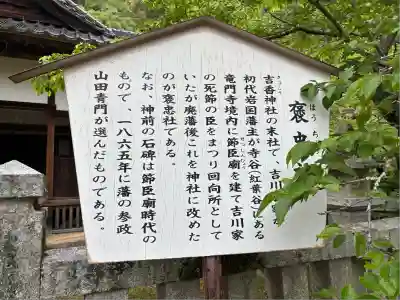 褒忠
ほうち
吉香神社の末社で、吉川
初代岩国藩主が寺谷(紅葉谷)にある
竜門寺境内に節臣廟を建て吉川家
の死節の臣をまつり回向所として
いたが廃藩後これを神社に改めた
のが褒忠社である。
なお、神前の石碑は節臣廟時代の
もので、一八六五年に藩の参政
山田青門が選んだものである。